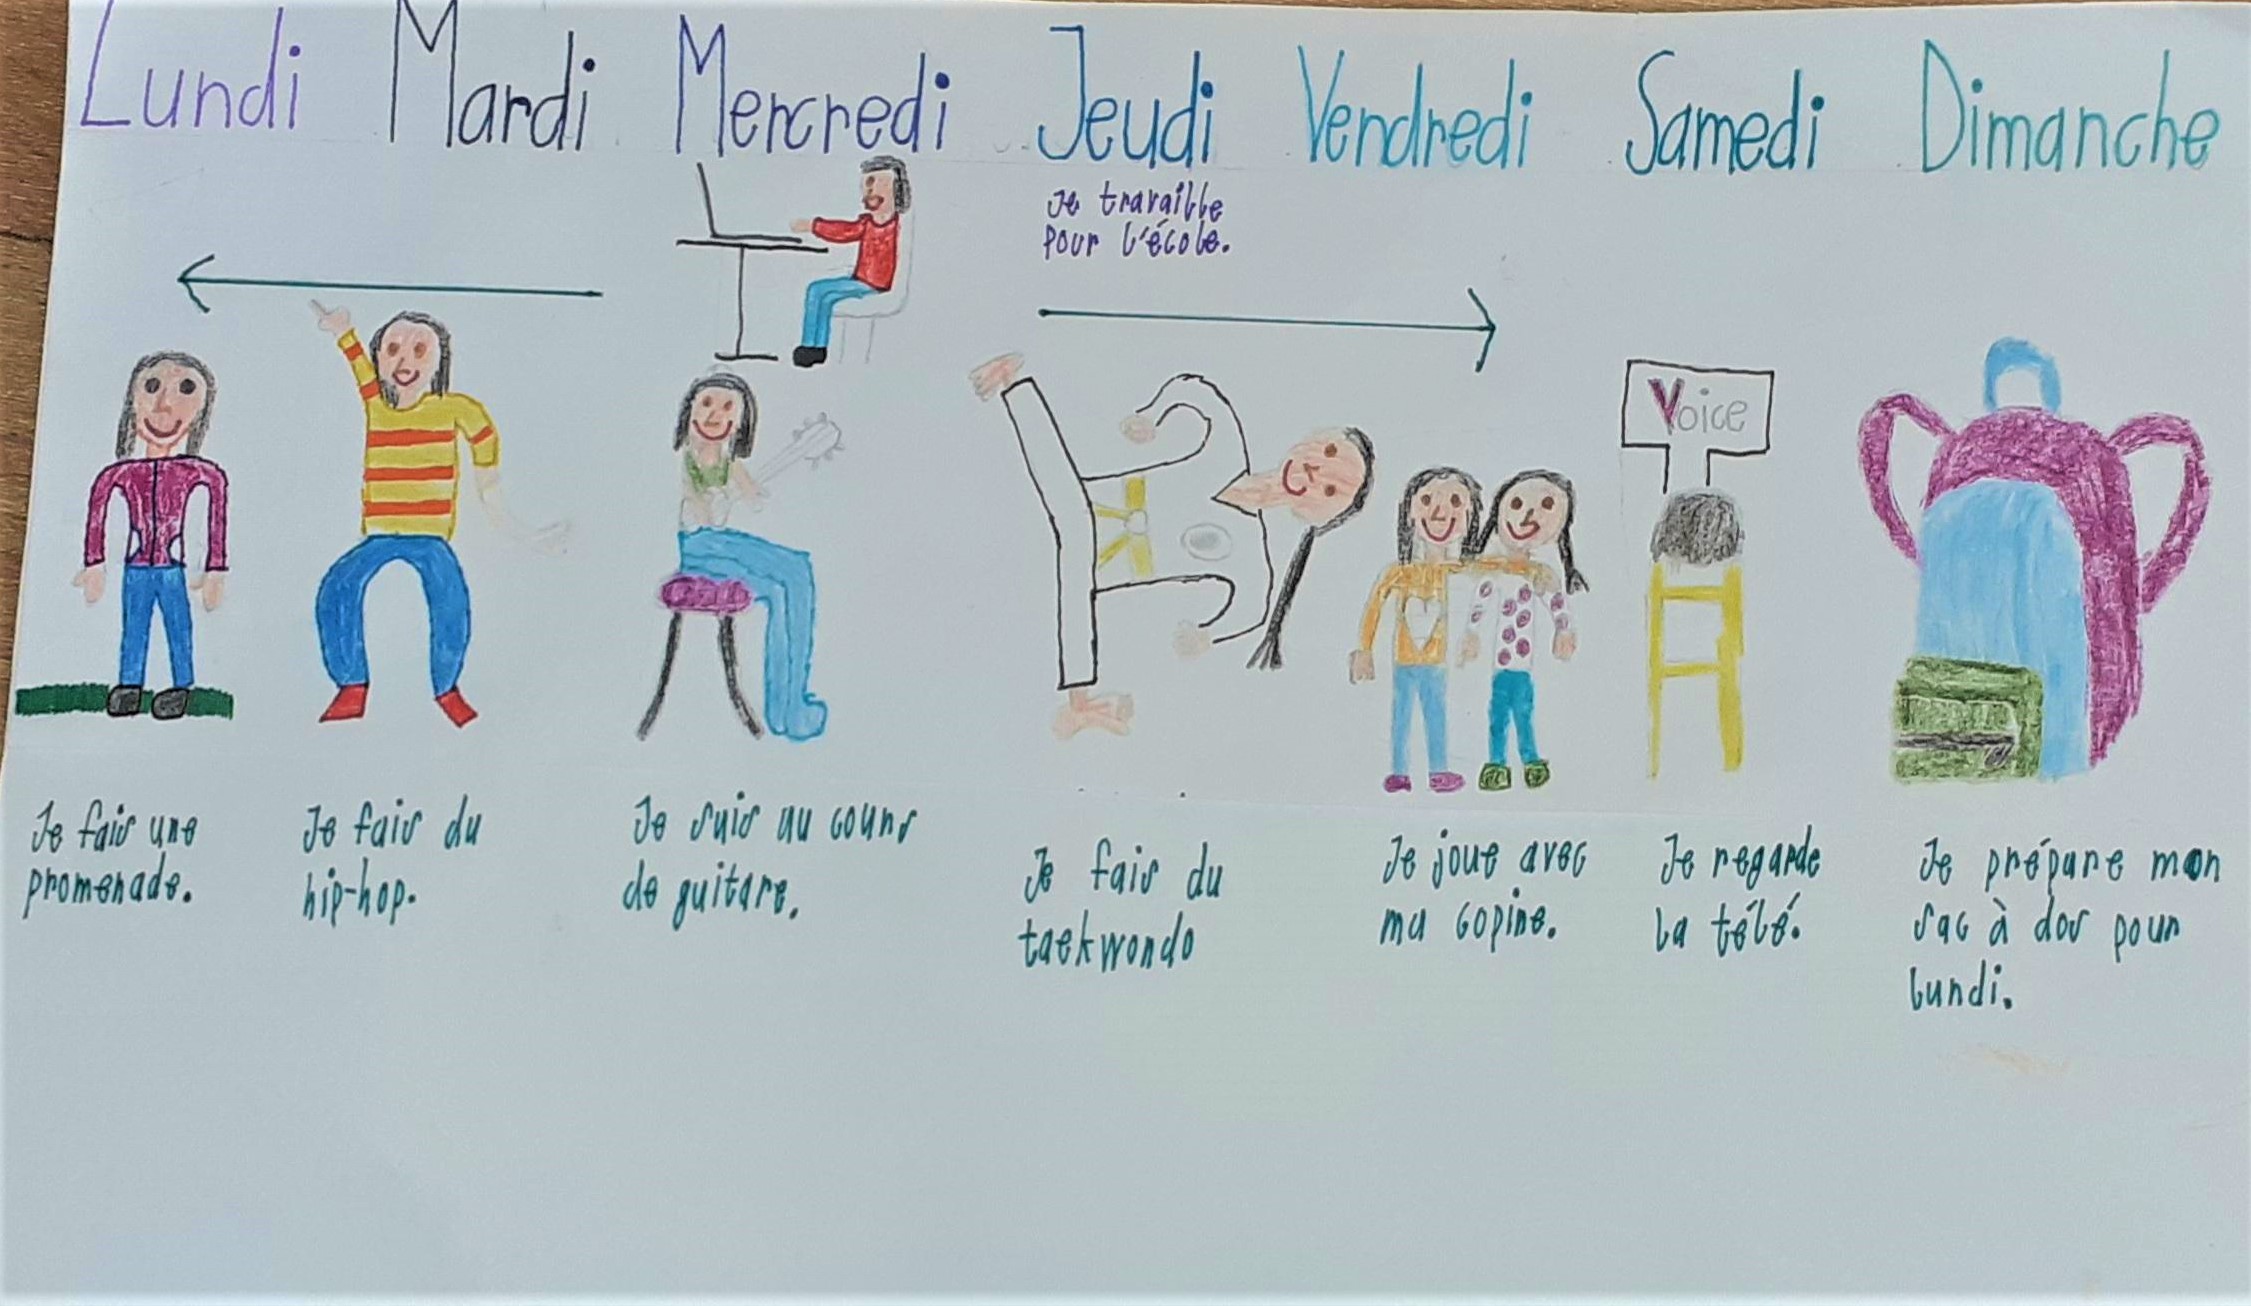 Lundi Mardi Mercredi Jeudi Vendredi Samedi Dimanche
Je travaille
pour l'école.
Voice
Je fais une
promenade.
Je fais du
hip-hop.
Je suis au cours
de guitare.
Je fais du
taekwondo
Je joue avec
ma copine.
Je regarde
la télé.
Je prépare mon
sac à dos pour
lundi.